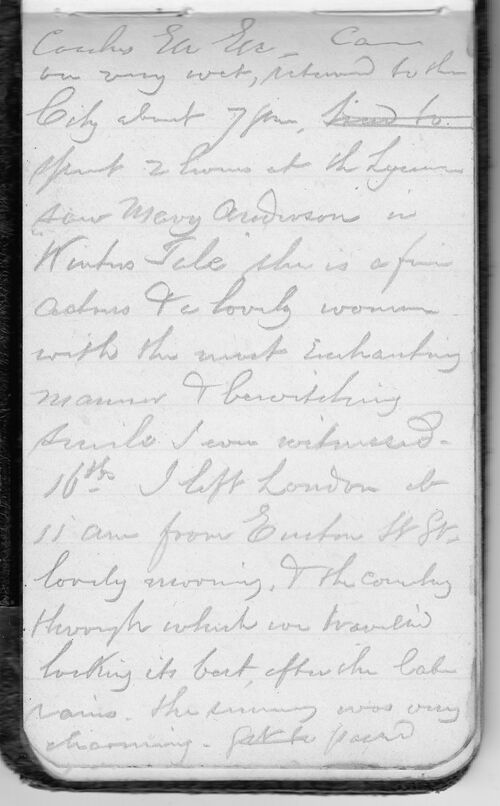 Coaches Etc Etc - Came
on very wet, returned to the
City about 7 pm, tired to
spent 2 hours at the Lyceum
saw Mary Anderson in
Winters Tale she is a fine
actress & a lovely woman
with the most Enchanting
manner & bewitching
smile I ever witnessed -
16th I left London at
11 am from Euston St Stn
lovely morning, & the country
through which we travel'd
looking its best after the late
rains. the scenery was very
charming - passed